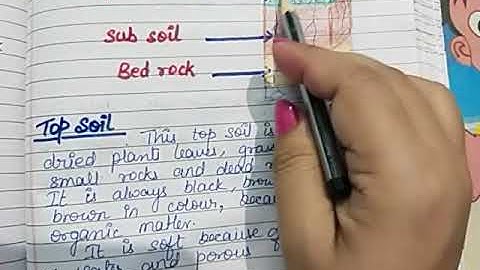 Sub soil
Bed rock
Top Soil
This top soil is
dried plants leaves, grass
small rocks and dead
It is always black, brow
brown in colour, becau
organic matter.
It is soft because of
and porous